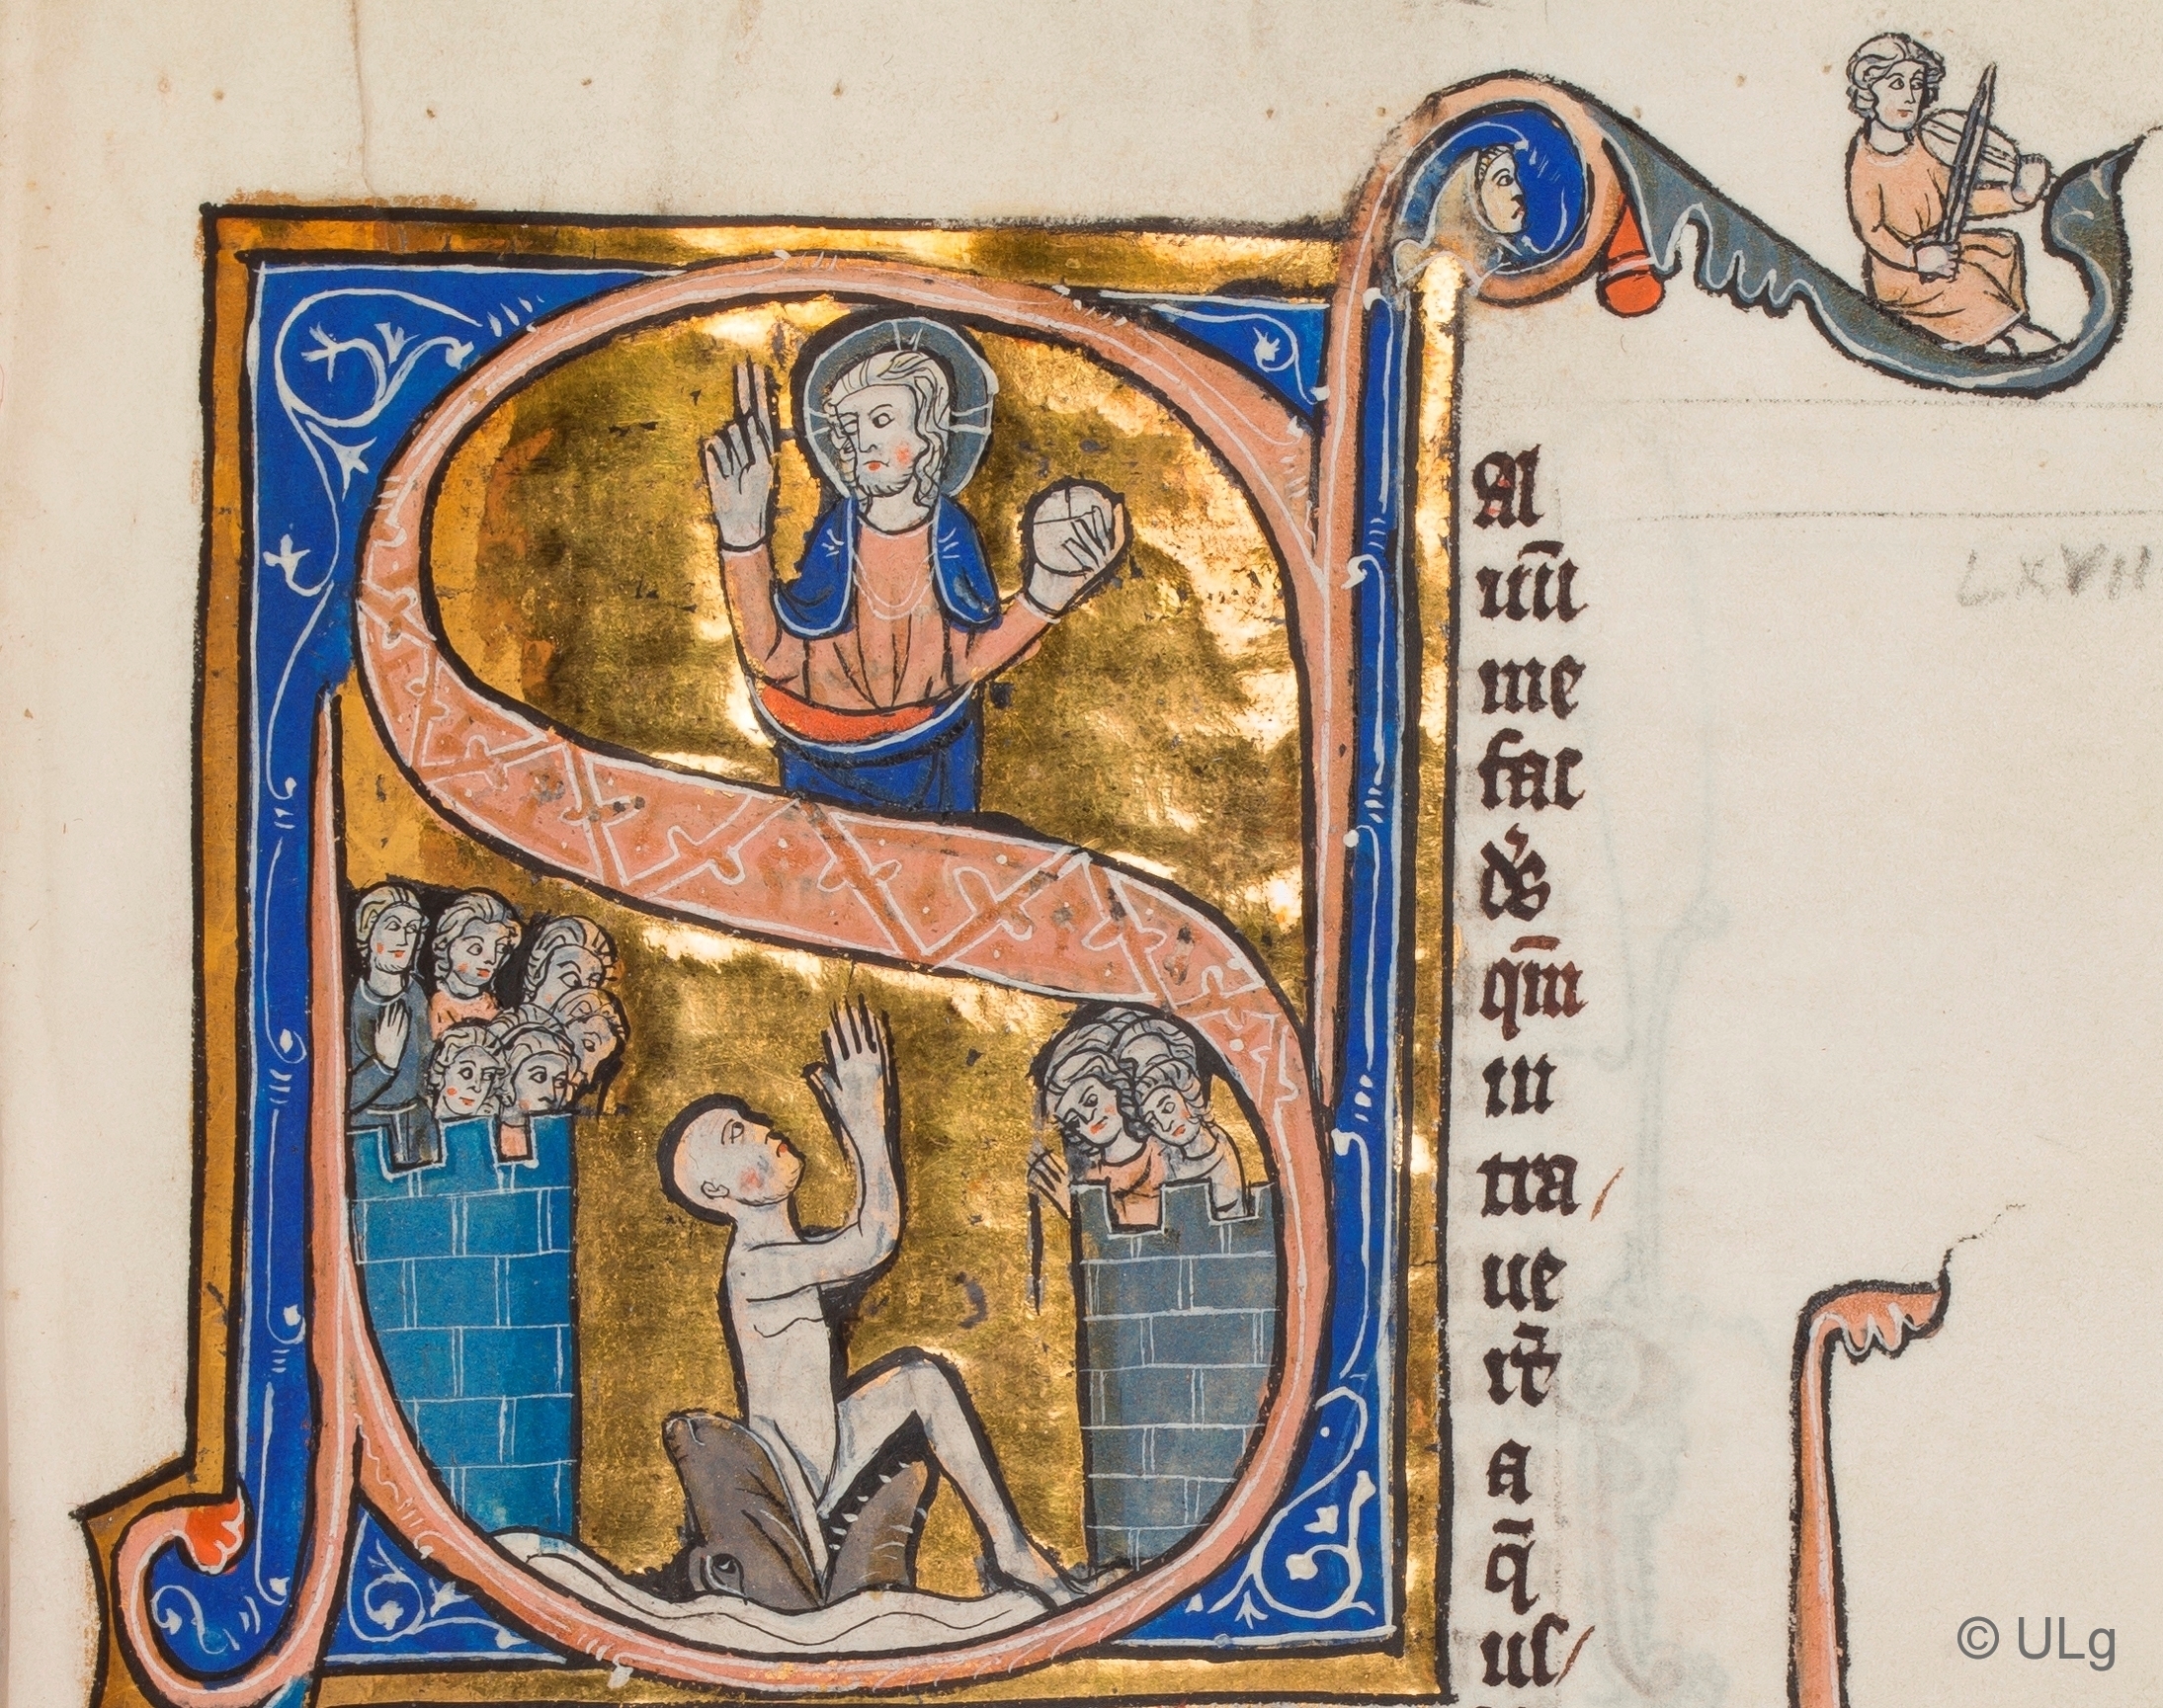 S
Al
uū
me
fac
ds
qm̄
in
tra
ue
rt̄
a
q̄
us
LXVII
© ULg